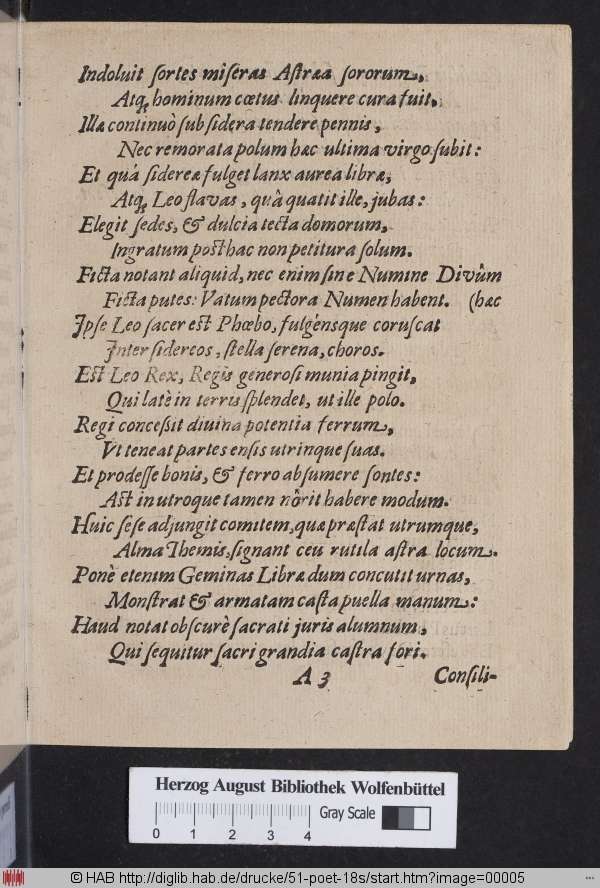 Indoluit sortes miseras Astræa sororum,
Atq; hominum cœtus linquere cura fuit,
Illa continuò sub sidera tendere pennis,
Nec remorata polum hæc ultima virgo subit:
Et quà sidereæ fulget lanx aurea libræ,
Atq; Leo flavas, quà quatit ille, jubas:
Elegit sedes, & dulcia tecta domorum,
Ingratum posthac non petitura solum.
Ficta notant aliquid, nec enim sine Numine Divûm
Ficta putes: Vatum pectora Numen habent. (hac
Ipse Leo sacer est Phœbo, fulgénsque coruscat
Inter sidereos, stella serena, choros.
Est Leo Rex, Regis generosi munia pingit,
Qui latè in terris splendet, ut ille polo.
Regi concessit divina potentia ferrum,
Vt teneat partes ensis utrinque suas.
Et prodesse bonis, & ferro absumere sontes:
Ast in utroque tamen nôrit habere modum.
Huic sese adjungit comitem, quæ præstat utrumque,
Alma Themis, signant ceu rutila astra locum.
Ponè etenim Geminas Libræ dum concutit urnas,
Monstrat & armatam casta puella manum:
Haud notat obscurè sacrati juris alumnum,
Qui sequitur sacri grandia castra fori.
A 3 Consili-
Herzog August Bibliothek Wolfenbüttel
Gray Scale
0 1 2 3 4
© HAB http://diglib.hab.de/drucke/51-poet-18s/start.htm?image=00005